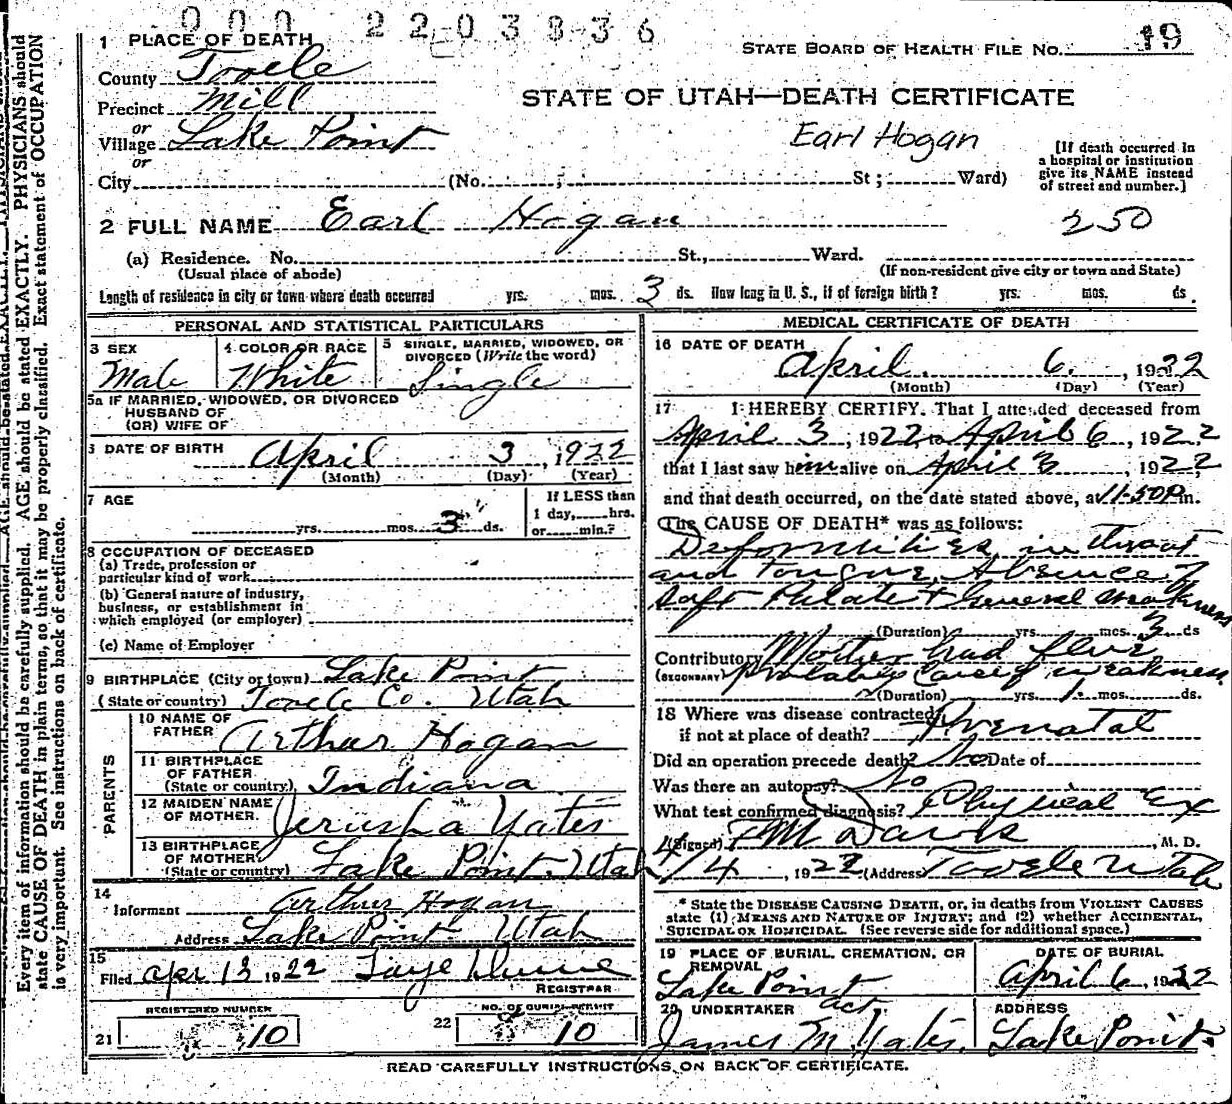 0 0 0 2 2 0 3 8 3 6
1 PLACE OF DEATH
STATE BOARD OF HEALTH FILE NO. 19
County Tooele
Precinct Mill
STATE OF UTAH—DEATH CERTIFICATE
or
Village Lake Point
Earl Hogan
or
City (No. ; St ; Ward)
[If death occurred in
a hospital or institution
give its NAME instead
of street and number.]
2 FULL NAME Earl Hogan
250
(a) Residence. No. St., Ward.
(Usual place of abode)
(If non-resident give city or town and State)
Length of residence in city or town where death occurred yrs. mos. 3 ds. How long in U. S., if of foreign birth? yrs. mos. ds.
PERSONAL AND STATISTICAL PARTICULARS
3 SEX
Male
4 COLOR OR RACE
White
5 SINGLE, MARRIED, WIDOWED, OR
DIVORCED (Write the word)
Single
5a IF MARRIED, WIDOWED, OR DIVORCED
HUSBAND OF
(OR) WIFE OF
DATE OF BIRTH April 3, 1922
(Month) (Day) (Year)
7 AGE
yrs. mos. 3 ds.
If LESS then
1 day, hrs.
or min.?
8 OCCUPATION OF DECEASED
(a) Trade, profession or
particular kind of work
(b) General nature of industry,
business, or establishment in
which employed (or employer)
(c) Name of Employer
9 BIRTHPLACE (City or town) Lake Point
(State or country) Tooele Co. Utah
PARENTS
10 NAME OF
FATHER Arthur Hogan
11 BIRTHPLACE
OF FATHER
(State or country) Indiana
12 MAIDEN NAME
OF MOTHER Jerusha Yates
13 BIRTHPLACE
OF MOTHER
(State or country) Lake Point, Utah
14
Informant Arthur Hogan
Address Lake Point Utah
15
Filed Apr 13 1922
REGISTRAR
REGISTERED NUMBER
21 10
NO. OF BURIAL PERMIT
22 10
MEDICAL CERTIFICATE OF DEATH
16 DATE OF DEATH
April 6, 1922
(Month) (Day) (Year)
17 I HEREBY CERTIFY, That I attended deceased from
April 3, 1922, to April 6, 1922
that I last saw him alive on April 3, 1922,
and that death occurred, on the date stated above, at 11:50 P m.
The CAUSE OF DEATH* was as follows:
Deformities in throat
and Tongue, Absence of
Soft Palate + General weakness
(Duration) yrs. mos. 3 ds
Contributory Mother had flue
(SECONDARY) Probably causing weakness
(Duration) yrs. 1 mos. ds.
18 Where was disease contracted,
if not at place of death? Prenatal
Did an operation precede death? No Date of
Was there an autopsy? No
What test confirmed diagnosis? Physical Ex
(Signed) M Davis, M. D.
4/4, 1922 (Address) Tooele Utah
* State the DISEASE CAUSING DEATH, or, in deaths from VIOLENT CAUSES
state (1) MEANS AND NATURE OF INJURY; and (2) whether ACCIDENTAL,
SUICIDAL OR HOMICIDAL. (See reverse side for additional space.)
19 PLACE OF BURIAL, CREMATION, OR
REMOVAL
Lake Point
DATE OF BURIAL
April 6, 1922
20 UNDERTAKER act.
James M. Yates.
ADDRESS
Lake Point.
READ CAREFULLY INSTRUCTIONS ON BACK OF CERTIFICATE.
Every item of information should be carefully supplied. AGE should be stated EXACTLY. PHYSICIANS should
state CAUSE OF DEATH in plain terms, so that it may be properly classified. Exact statement of OCCUPATION
is very important. See instructions on back of certificate.